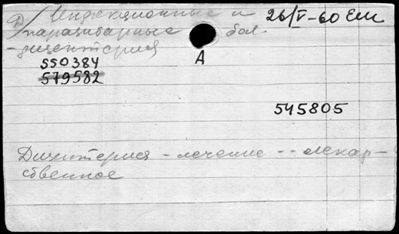 Инфекционные и 26/V-60 Еш
паразитарные бол.
-дизентерия
А
550384
579582
545805
Дизентерия - лечение -- лекар-
ственное